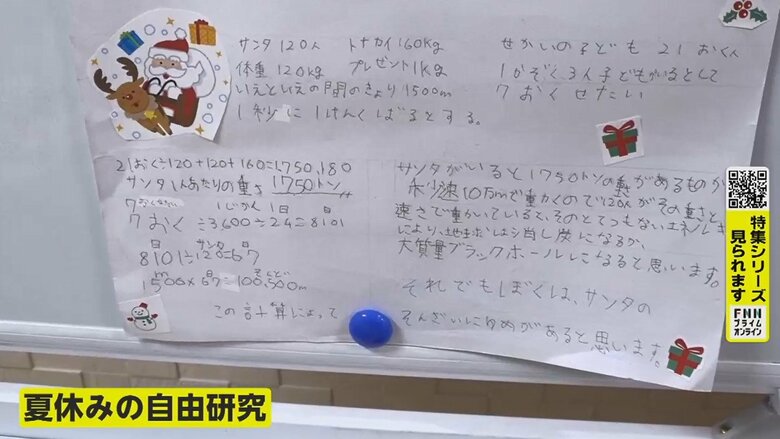 サンタ120人　トナカイ160Kg
体重120kg　プレゼント1Kg
いえといえの間のきょり1500m
1秒に1けんくばるとする。
せかいの子ども 21おく人
1かぞく、3人子どもがいるとして
7おくせたい
21おく÷120+120+160=1,750,180
サンタ1人あたりの重さ 1750トン
7おくせたい 1じかん 1日 日
7おく÷3,600÷24=8101
日 サンタ 日
8101÷120=67
m 日 そくど
1500×67=100,500m
この計算によって
サンタがいると1750トンの重さがあるものが
秒速10万mで動くので120人がその重さと
速さで動いていると、そのとてつもないエネルギー
により、地球は消し炭になるか、
大質量ブラックホールになると思います。
それでもぼくは、サンタの
そんざいにゆめがあると思います。
特集シリーズ
見られます
FNN
プライム
オンライン
夏休みの自由研究